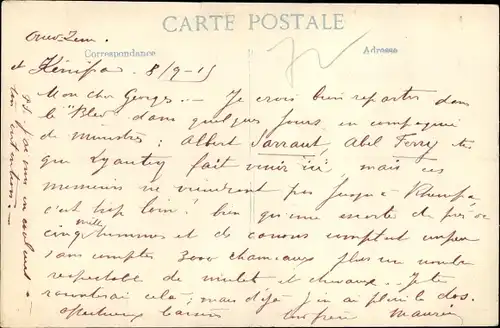 CARTE POSTALE
Correspondance
Adresse
Oued-Zem
et Kénifra 8/9-15
Mon cher Georges.- Je crois bien repartir dans
le "Bled" dans quelques jours en compagnie
de ministres : Albert Sarraut, Abel Ferry etc
que Lyautey fait venir ici, mais ces
messieurs ne viendront pas jusqu'à Khenifra
c'est trop loin ! bien qu'une escorte de près de
cinq mille hommes et des canons comptent
sans compter 3000 chameaux plus un nombre
respectable de mulets et chevaux. Je te
raconterai cela ; mais déjà j'en ai plein le dos.
Affectueux baisers ton frère Maurice
P.S. j'ai mis en couleurs